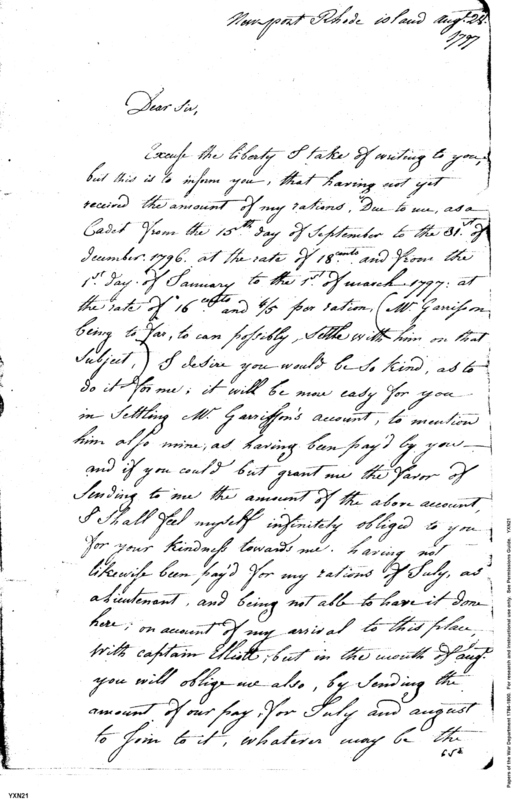 Newport Rhode island augt. 24.
1797
Dear Sir,
Excuse the liberty I take of writing to you,
but this is to inform you, that having not yet
received the amount of my rations, Due to me, as a
Cadet from the 15th day of September to the 31st of
december. 1796. at the rate of 18 cents. and from the
1st. day. of January to the 1st. of march 1797. at
the rate of 16 cents and 4/5 per ration, (Mr. Garrison
being to far, to can possibly, settle with him on that
subject,) I desire you would be so kind, as to
do it for me; it will be more easy for you
in settling Mr. Garrisson's account, to mention
him also mine, as having been pay'd by you—
and if you could but grant me the favor of
sending to me the amount of the above account,
I shall feel myself infinitely obliged to you
for your kindness towards me. having not
likewise been pay'd for my rations of July, as
a lieutenant, and being not able to have it done
here; on account of my arrival to this place,
with captain Elliott; but in the month of augt.
you will oblige me also, by sending the
amount of our pay, for July and august
to join to it, whatever may be the
YXN21
Papers of the War Department 1784-1800. For research and instructional use only. See Permissions Guide. YXN21